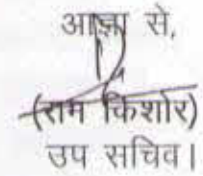 आज्ञा से,
(राम किशोर)
उप सचिव।